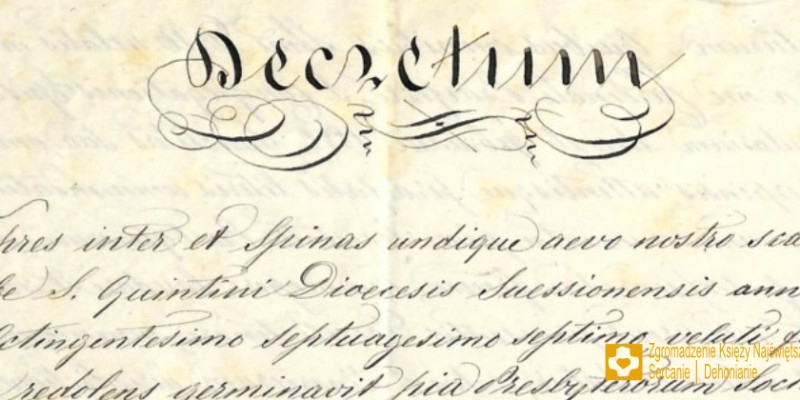 Decretum
pres inter et Spinas undique aevo nostro sca
S. Quintini Dioecesis Suessionensis ann
ctingentesimo septuagesimo septimo, veluti
redolens germinavit pia Presbyterorum Soc
Zgromadzenie Księży Najświętsz
Sercanie | Dehonianie